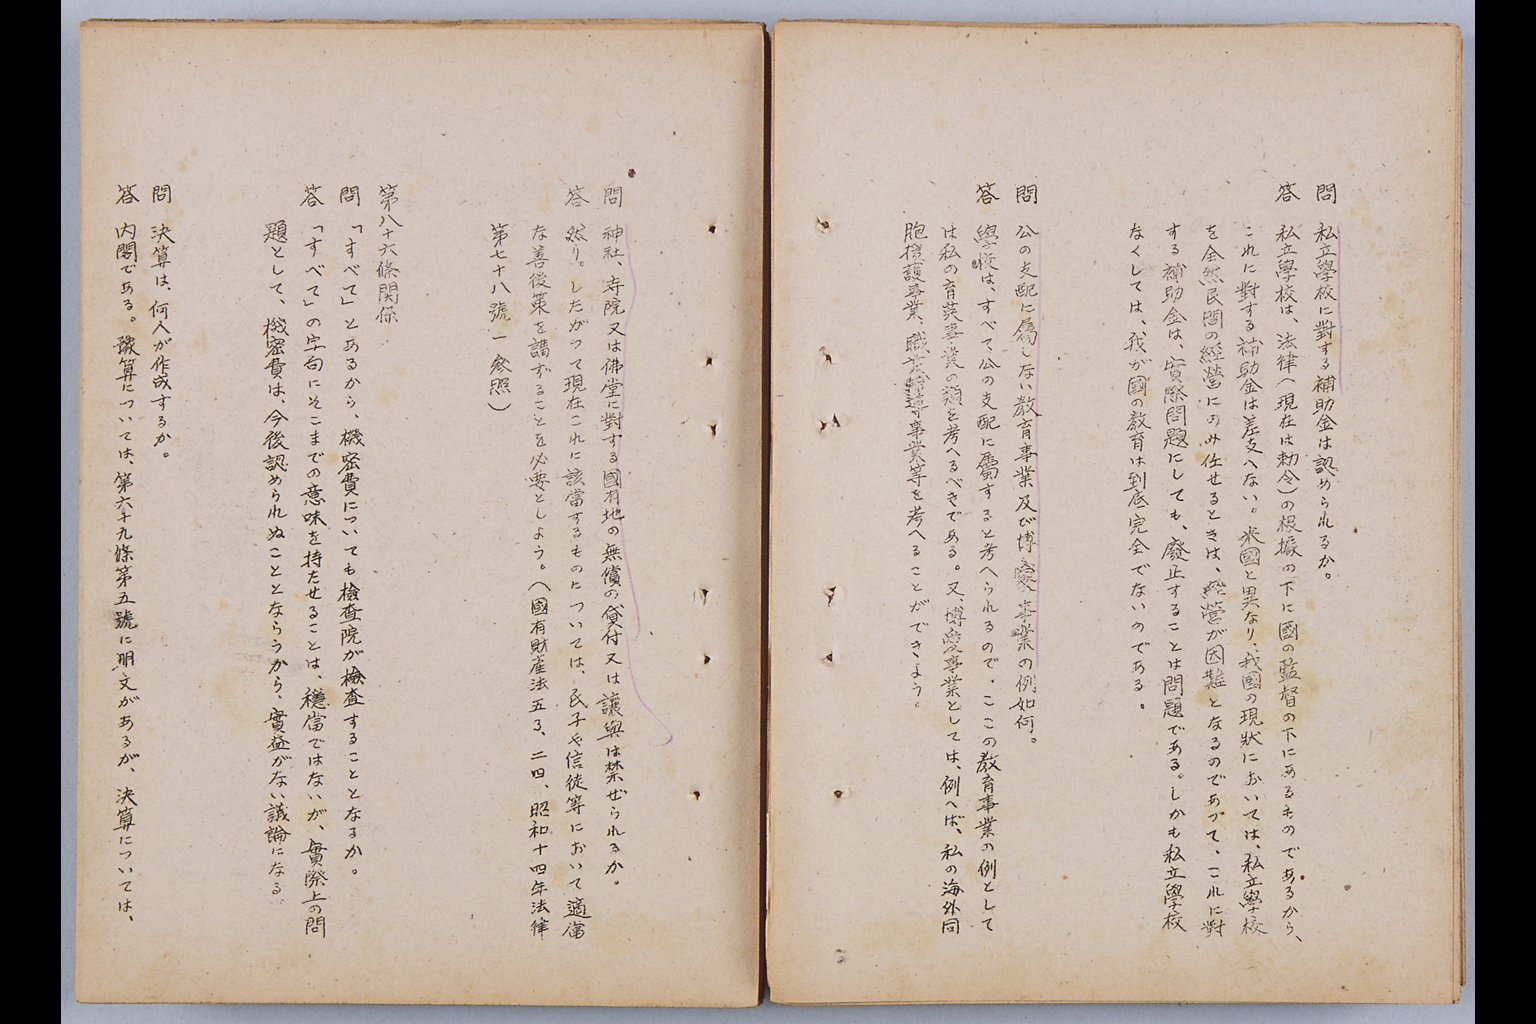 問　私立學校に對する補助金は認められるか。
答　私立學校は、法律（現在は勅令）の根據の下に國の監督の下にあるものであるから、
これに對する補助金は差支へない。米國と異なり、我國の現狀においては、私立學校
を全然民間の經營にのみ任せるときは、經營が困難となるのであつて、これに對
する補助金は、實際問題にしても、廢止することは問題である。しかも私立學校
なくしては、我が國の教育は到底完全でないのである。
問　公の支配に屬しない教育事業及び博愛事業の例如何。
答　學校は、すべて公の支配に屬すると考へられるので、ここの教育事業の例として
は私の育英事業の類を考へるべきである。又、博愛事業としては、例へば、私の海外同
胞援護事業、職業輔導事業等を考へることができよう。
問　神社、寺院又は佛堂に對する國有地の無償の貸付又は讓與は禁ぜられるか。
答　然り。したがつて現在これに該當するものについては、氏子や信徒等において適當
な善後策を講ずることを必要としよう。（國有財產法五ろ、二四、昭和十四年法律
第七十八號一參照）
第八十六條関係
問　「すべて」とあるから、機密費についても檢查院が檢查することとなるか。
答　「すべて」の字句にそこまでの意味を持たせることは、穩當ではないが、實際上の問
題として、機密費は、今後認められぬこととならうから、實益がない議論になる
問　決算は、何人が作成するか。
答　內閣である。豫算については、第六十九條第五號に明文があるが、決算については、